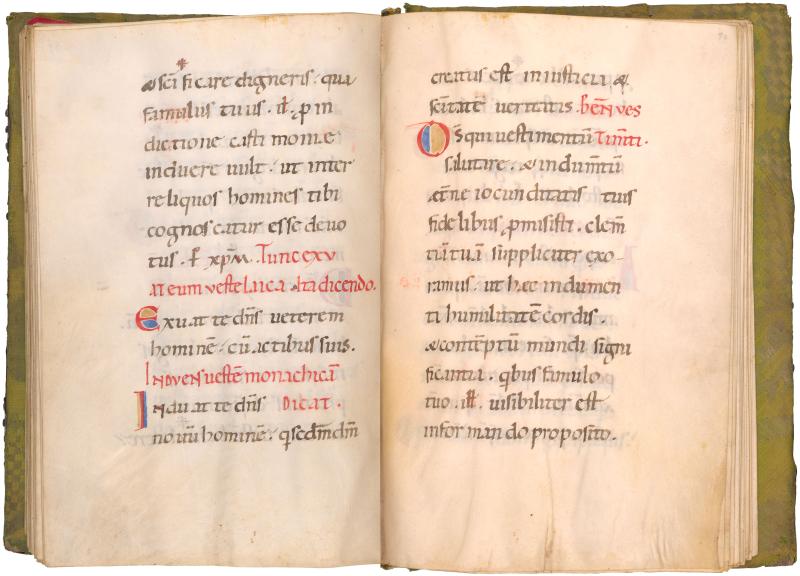 & sc̄ificare digneris. qua
famulus tuus. ił. ꝑ in
dictione castimonie
induere uult. ut inter
reliquos homines tibi
cognoscatur esse deuo
tus. ꝑ xp̄m. Tunc exu
at eum ueste laica. Ita dicendo.
Exuat te dn̄s ueterem
hominē. cū actibus suis.
Induens uestēm monachicā
Induat te dn̄s Dicat.
nouū hominē. q̄ sc̄dm̄ dm̄
creatus est in iusticia &
sc̄itatē ueritatis. ben̄ ues
Ds̄ qui uestimentū Tim̄ti.
salutare. & indum̄tū
æt̄ne iocunditatis tuis
fidelibus ꝓmisisti. clem̄
tiā tuā suppliciter exo-
ramus. ut hæc indumen
ti humilitatē cordis.
& contēptū mundi signi
ficantia. qbus famulo
tuo. ill. uisibiliter est
informando proposito.